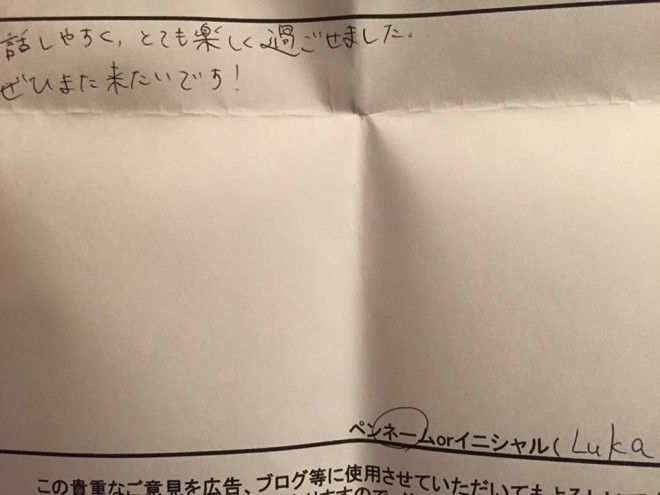 話しやすく、とても楽しく過ごせました。
ぜひまた来たいです!
ペンネームorイニシャル( Luka
この貴重なご意見を広告、ブログ等に使用させていただいてもよろしい